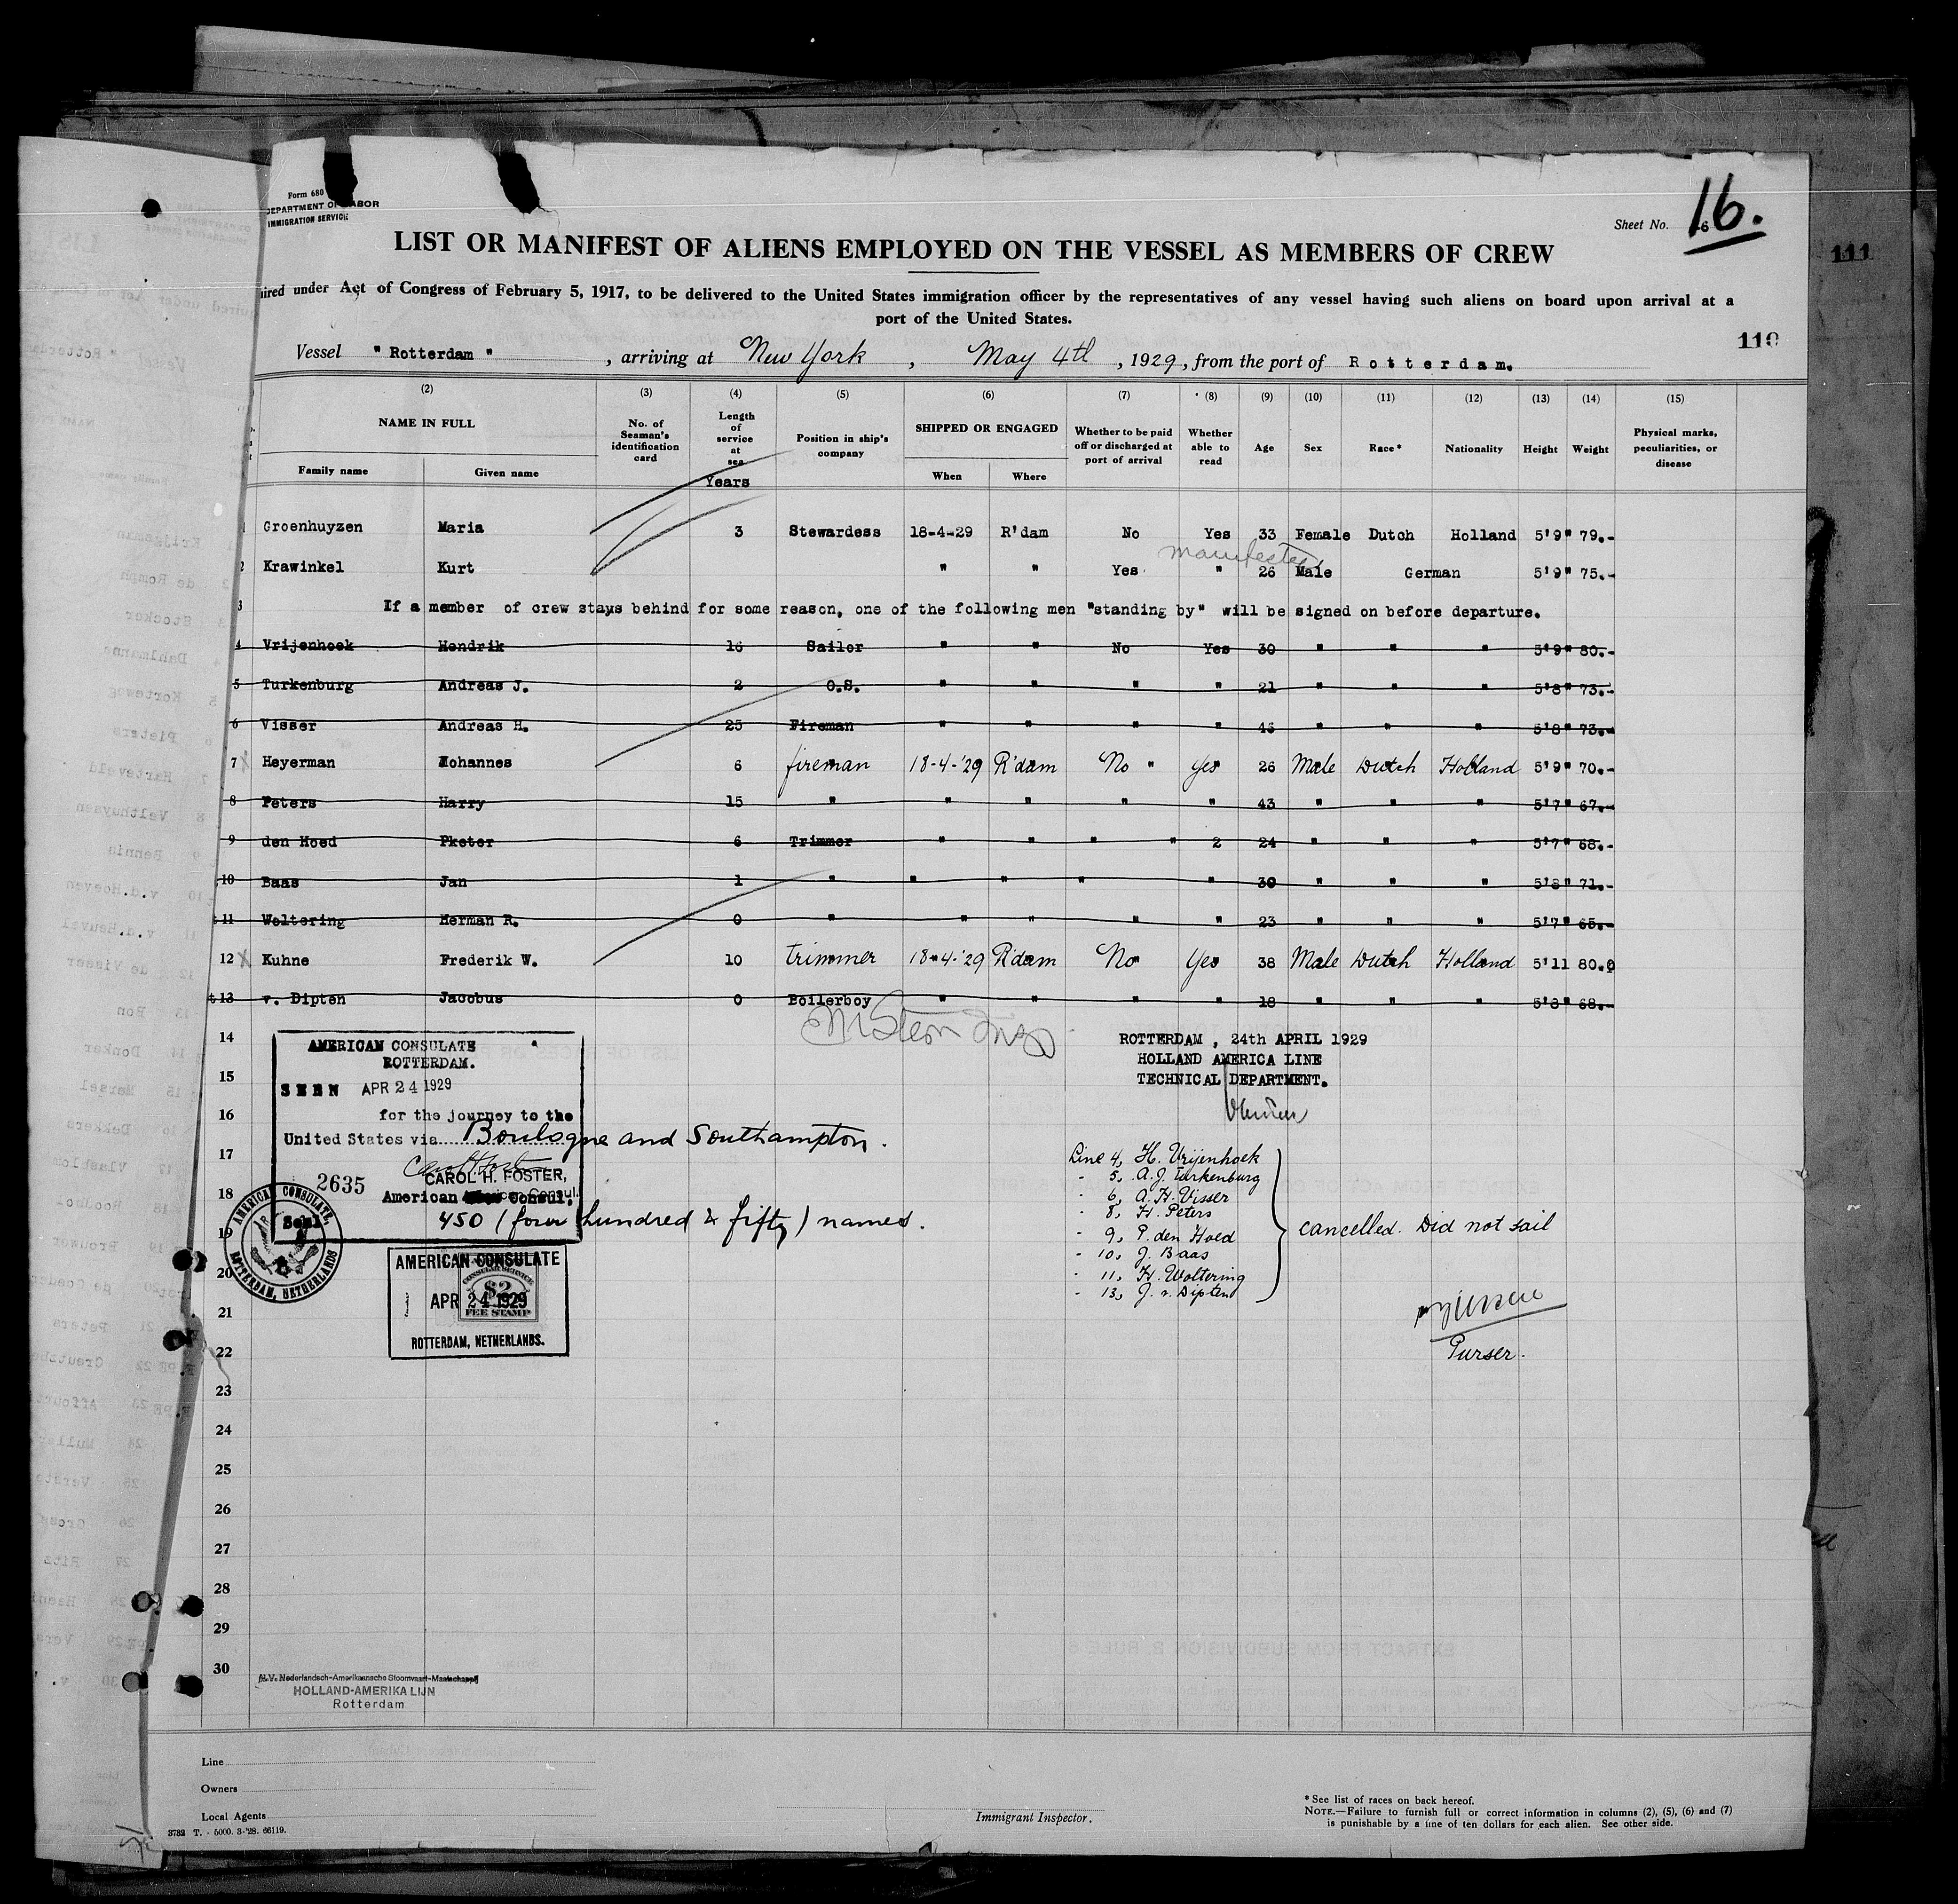 Form 680
DEPARTMENT OF LABOR
IMMIGRATION SERVICE
Sheet No. 16.
LIST OR MANIFEST OF ALIENS EMPLOYED ON THE VESSEL AS MEMBERS OF CREW
111
ired under Act of Congress of February 5, 1917, to be delivered to the United States immigration officer by the representatives of any vessel having such aliens on board upon arrival at a
port of the United States.
110
Vessel "Rotterdam", arriving at New York, May 4th, 1929, from the port of Rotterdam.
(2) (3) (4) (5) (6) (7) (8) (9) (10) (11) (12) (13) (14) (15)
NAME IN FULL No. of Seaman's identification card Length of service at sea Position in ship's company SHIPPED OR ENGAGED Whether to be paid off or discharged at port of arrival Whether able to read Age Sex Race* Nationality Height Weight Physical marks, peculiarities, or disease
Family name Given name Years When Where
1 Groenhuyzen Maria 3 Stewardess 18-4-29 R'dam No Yes 33 Female Dutch Holland 5'9" 79.-
manifested
2 Krawinkel Kurt " " Yes " 26 Male German 5'9" 75.-
3 If a member of crew stays behind for some reason, one of the following men "standing by" will be signed on before departure.
4 Vrijenhoek Hendrik 16 Sailor " " No Yes 30 " " " 5'9" 80.-
5 Turkenburg Andreas J. 2 O.S. " " " " 21 " " " 5'8" 73.-
6 Visser Andreas H. 25 Fireman " " " " 45 " " " 5'8" 73.-
7 Heyerman Johannes 6 fireman 18-4-'29 R'dam No " Yes 26 Male Dutch Holland 5'9" 70.-
8 Peters Harry 15 " " " " " 43 " " " 5'7" 67.-
9 den Hoed Pketer 6 Trimmer " " " " 2 24 " " " 5'7" 68.-
10 Baas Jan 1 " " " " " 30 " " " 5'8" 71.-
11 Woltering Herman R. 0 " " " " " 23 " " " 5'7" 65.-
12 Kuhne Frederik W. 10 trimmer 18-4-'29 R'dam No Yes 38 Male Dutch Holland 5'11 80.0
13 v. Dipten Jacobus 0 Boilerboy " " " " 18 " " " 5'8" 68.-
14
15
16
17
18
19
20
21
22
23
24
25
26
27
28
29
30
AMERICAN CONSULATE
ROTTERDAM.
SEEN APR 24 1929
for the journey to the
United States via Boulogne and Southampton.
CAROL H. FOSTER,
2635
American Consul.
Seal
450 (four hundred & fifty) names.
AMERICAN CONSULATE,
ROTTERDAM, NETHERLANDS
AMERICAN CONSULATE
CONSULAR SERVICE
$2
APR 24 1929
FEE STAMP
ROTTERDAM, NETHERLANDS.
ROTTERDAM, 24th APRIL 1929
HOLLAND AMERICA LINE
TECHNICAL DEPARTMENT.
Line 4, H. Vrijenhoek
- 5, A.J. Turkenburg
- 6, A.H. Visser
- 8, H. Peters
- 9, P. den Hoed
- 10, J. Baas
- 11, H. Woltering
- 13, J. v. Dipten
cancelled. Did not sail
Purser.
N.V. Nederlandsch-Amerikaansche Stoomvaart-Maatschappij
HOLLAND-AMERIKA LIJN
Rotterdam
Line
Owners
Local Agents
3782 T. - 5000. 3-'28. 66119.
Immigrant Inspector.
* See list of races on back hereof.
NOTE.—Failure to furnish full or correct information in columns (2), (5), (6) and (7)
is punishable by a fine of ten dollars for each alien. See other side.